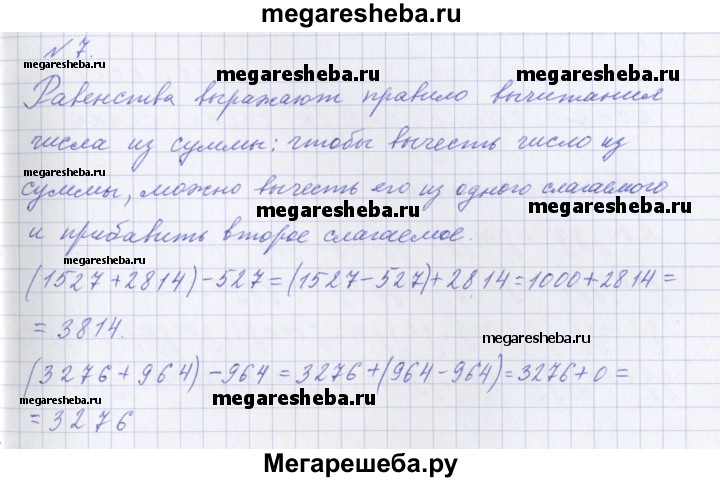 megaresheba.ru
№ 7.
megaresheba.ru megaresheba.ru
Равенства выражают правило вычитания
числа из суммы: чтобы вычесть число из
megaresheba.ru
суммы, можно вычесть его из одного слагаемого
megaresheba.ru megaresheba.ru
и прибавить второе слагаемое.
(1527+2814)-527=(1527-527)+2814=1000+2814=
=3814.
megaresheba.ru
(3276+964)-964=3276+(964-964)=3276+0=
megaresheba.ru megaresheba.ru
=3276
Мегарешеба.ру